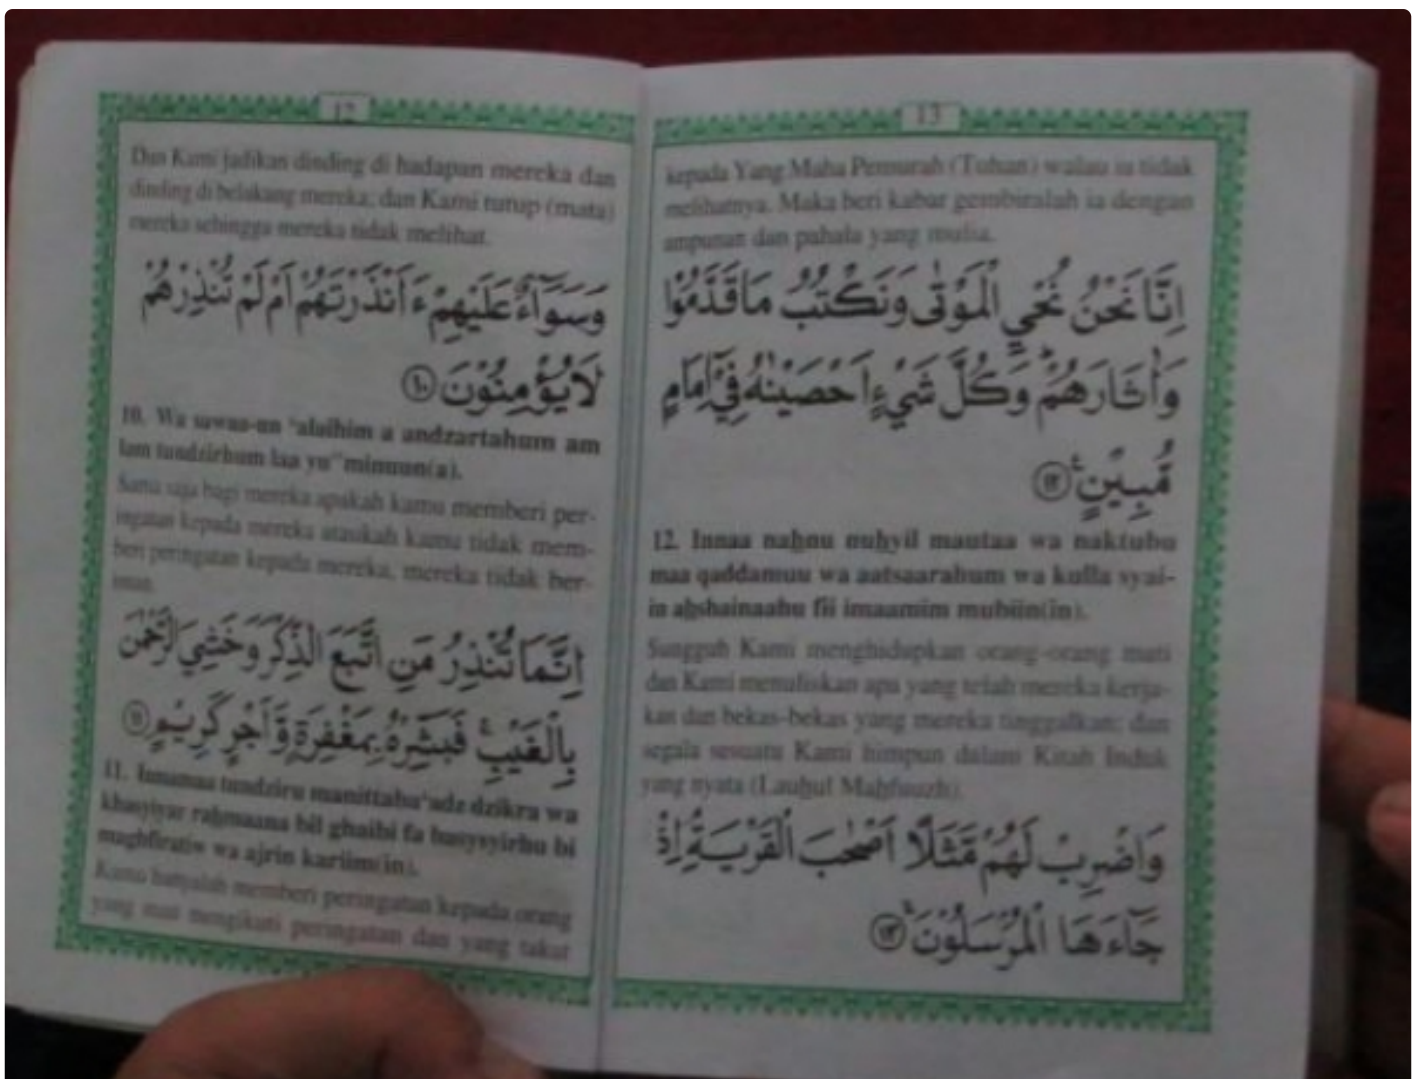 12
Dan Kami jadikan dinding di hadapan mereka dan
dinding di belakang mereka; dan Kami tutup (mata)
mereka sehingga mereka tidak melihat.
وَسَوَآءٌ عَلَيْهِمْ ءَاَنْذَرْتَهُمْ اَمْ لَمْ تُنْذِرْهُمْ
لَا يُؤْمِنُوْنَ ۝١٠
10. Wa sawaa-un 'alaihim a andzartahum am
lam tundzirhum laa yu'minuun(a).
Sama saja bagi mereka apakah kamu memberi per-
ingatan kepada mereka ataukah kamu tidak mem-
beri peringatan kepada mereka, mereka tidak ber-
iman.
اِنَّمَا تُنْذِرُ مَنِ اتَّبَعَ الذِّكْرَ وَخَشِيَ الرَّحْمٰنَ
بِالْغَيْبِ ۚ فَبَشِّرْهُ بِمَغْفِرَةٍ وَّاَجْرٍ كَرِيْمٍ ۝١١
11. Innamaa tundziru manittaba'adz dzikra wa
khasyiyar raḥmaana bil ghaibi fa basysyirhu bi
maghfiratiw wa ajrin kariim(in).
Kamu hanyalah memberi peringatan kepada orang
yang mau mengikuti peringatan dan yang takut
13
kepada Yang Maha Pemurah (Tuhan) walau ia tidak
melihatnya. Maka beri kabar gembiralah ia dengan
ampunan dan pahala yang mulia.
اِنَّا نَحْنُ نُحْيِ الْمَوْتٰى وَنَكْتُبُ مَا قَدَّمُوْا
وَاٰثَارَهُمْ ۗ وَكُلَّ شَيْءٍ اَحْصَيْنٰهُ فِيْٓ اِمَامٍ
مُّبِيْنٍ ۚ ۝١٢
12. Innaa naḥnu nuḥyil mautaa wa naktubu
maa qaddamuu wa aatsaarahum wa kulla syai-
in aḥshainaahu fii imaamim mubiin(in).
Sungguh Kami menghidupkan orang-orang mati
dan Kami menuliskan apa yang telah mereka kerja-
kan dan bekas-bekas yang mereka tinggalkan; dan
segala sesuatu Kami himpun dalam Kitab Induk
yang nyata (Lauḥul Maḥfuuzh).
وَاضْرِبْ لَهُمْ مَّثَلًا اَصْحٰبَ الْقَرْيَةِ ۘ اِذْ
جَآءَهَا الْمُرْسَلُوْنَ ۚ ۝١٣